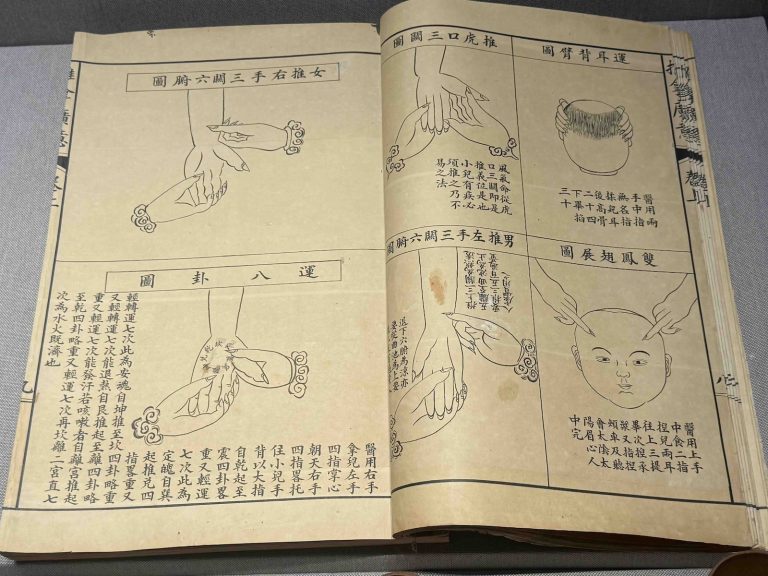 運耳背臂圖
醫用兩
手中指
無名指
揉兒耳
後高骨
二十四
下畢掐
三十
雙鳳翅展圖
醫用上手
中食二指
捏兒兩耳
往上三提
畢次捏承
漿又指捏
頰車及聽
會太陰太
陽眉心人
中完
推虎口三關圖
風氣命從虎
口三關即是
推義位是也
小兒有疾必
須推之乃不
易之法
男推左手三關六腑圖
退下六腑為涼亦
女推右手三關六腑圖
運八卦圖
醫用右手
拿兒左手
四指掌心
朝天右手
四指畧托
住小兒手
背以大指
自乾起至
震四卦畧
重又輕運
七次此為
定魄自巽
起推兌四
指畧重又
輕轉運七次此為安魂自坤推至坎四卦略重
又輕轉運七次能退熱自艮推起至離四卦略
重又輕運七次能發汗若咳嗽者自離宮推起
至乾四卦略重又輕運七次再坎離二宮直七
次為水火既濟也